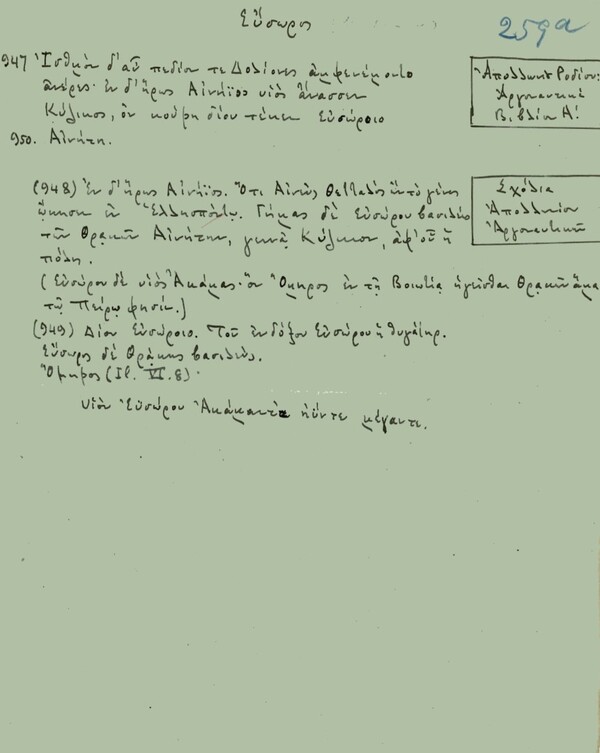 Εὔσωρος
259a
947 Ἰσθμὸν δ' αὖ πεδίον τε Δολίονες ἀμφενέμοντο
ἀνέρες· ἐν δ' ἥρως Αἰνήϊος υἱὸς ἄνασσεν
Κύζικος, ὃν κούρη δίου τέκεν Εὐσώροιο
950. Αἰνήτη.
Ἀπολλωνίου Ροδίου:
Ἀργοναυτικά
Βιβλίον Α!
(948) Ἐν δ' ἥρως Αἰνήϊος. Ὅτι Αἰνεὺς Θετταλὸς ἦν τὸ γένος
ᾤκησεν ἐν Ἑλλησπόντῳ. Γήμας δὲ Εὐσώρου βασιλέως
τῶν Θρᾳκῶν Αἰνήτην, γεννᾷ Κύζικον, ἀφ' οὗ ἡ
πόλις.
Σχόλια
Ἀπολλωνίου
Ἀργοναυτικῶν
(Εὐσώρου δὲ υἱὸς Ἀκάμας· ὃν Ὅμηρος ἐν τῇ Βοιωτίᾳ ἡγεῖσθαι Θρᾳκῶν ἅμα
τῷ Πείρῳ φησίν.)
(949) Δίου Εὐσώροιο. Τοῦ ἐνδόξου Εὐσώρου ἡ θυγάτηρ.
Εὔσωρος δὲ Θρᾴκης βασιλεύς.
Ὅμηρος (Il. VI. 8)·
υἱὸν Ἐϋσώρου Ἀκάμαντα ἠΰν τε μέγαν τε.